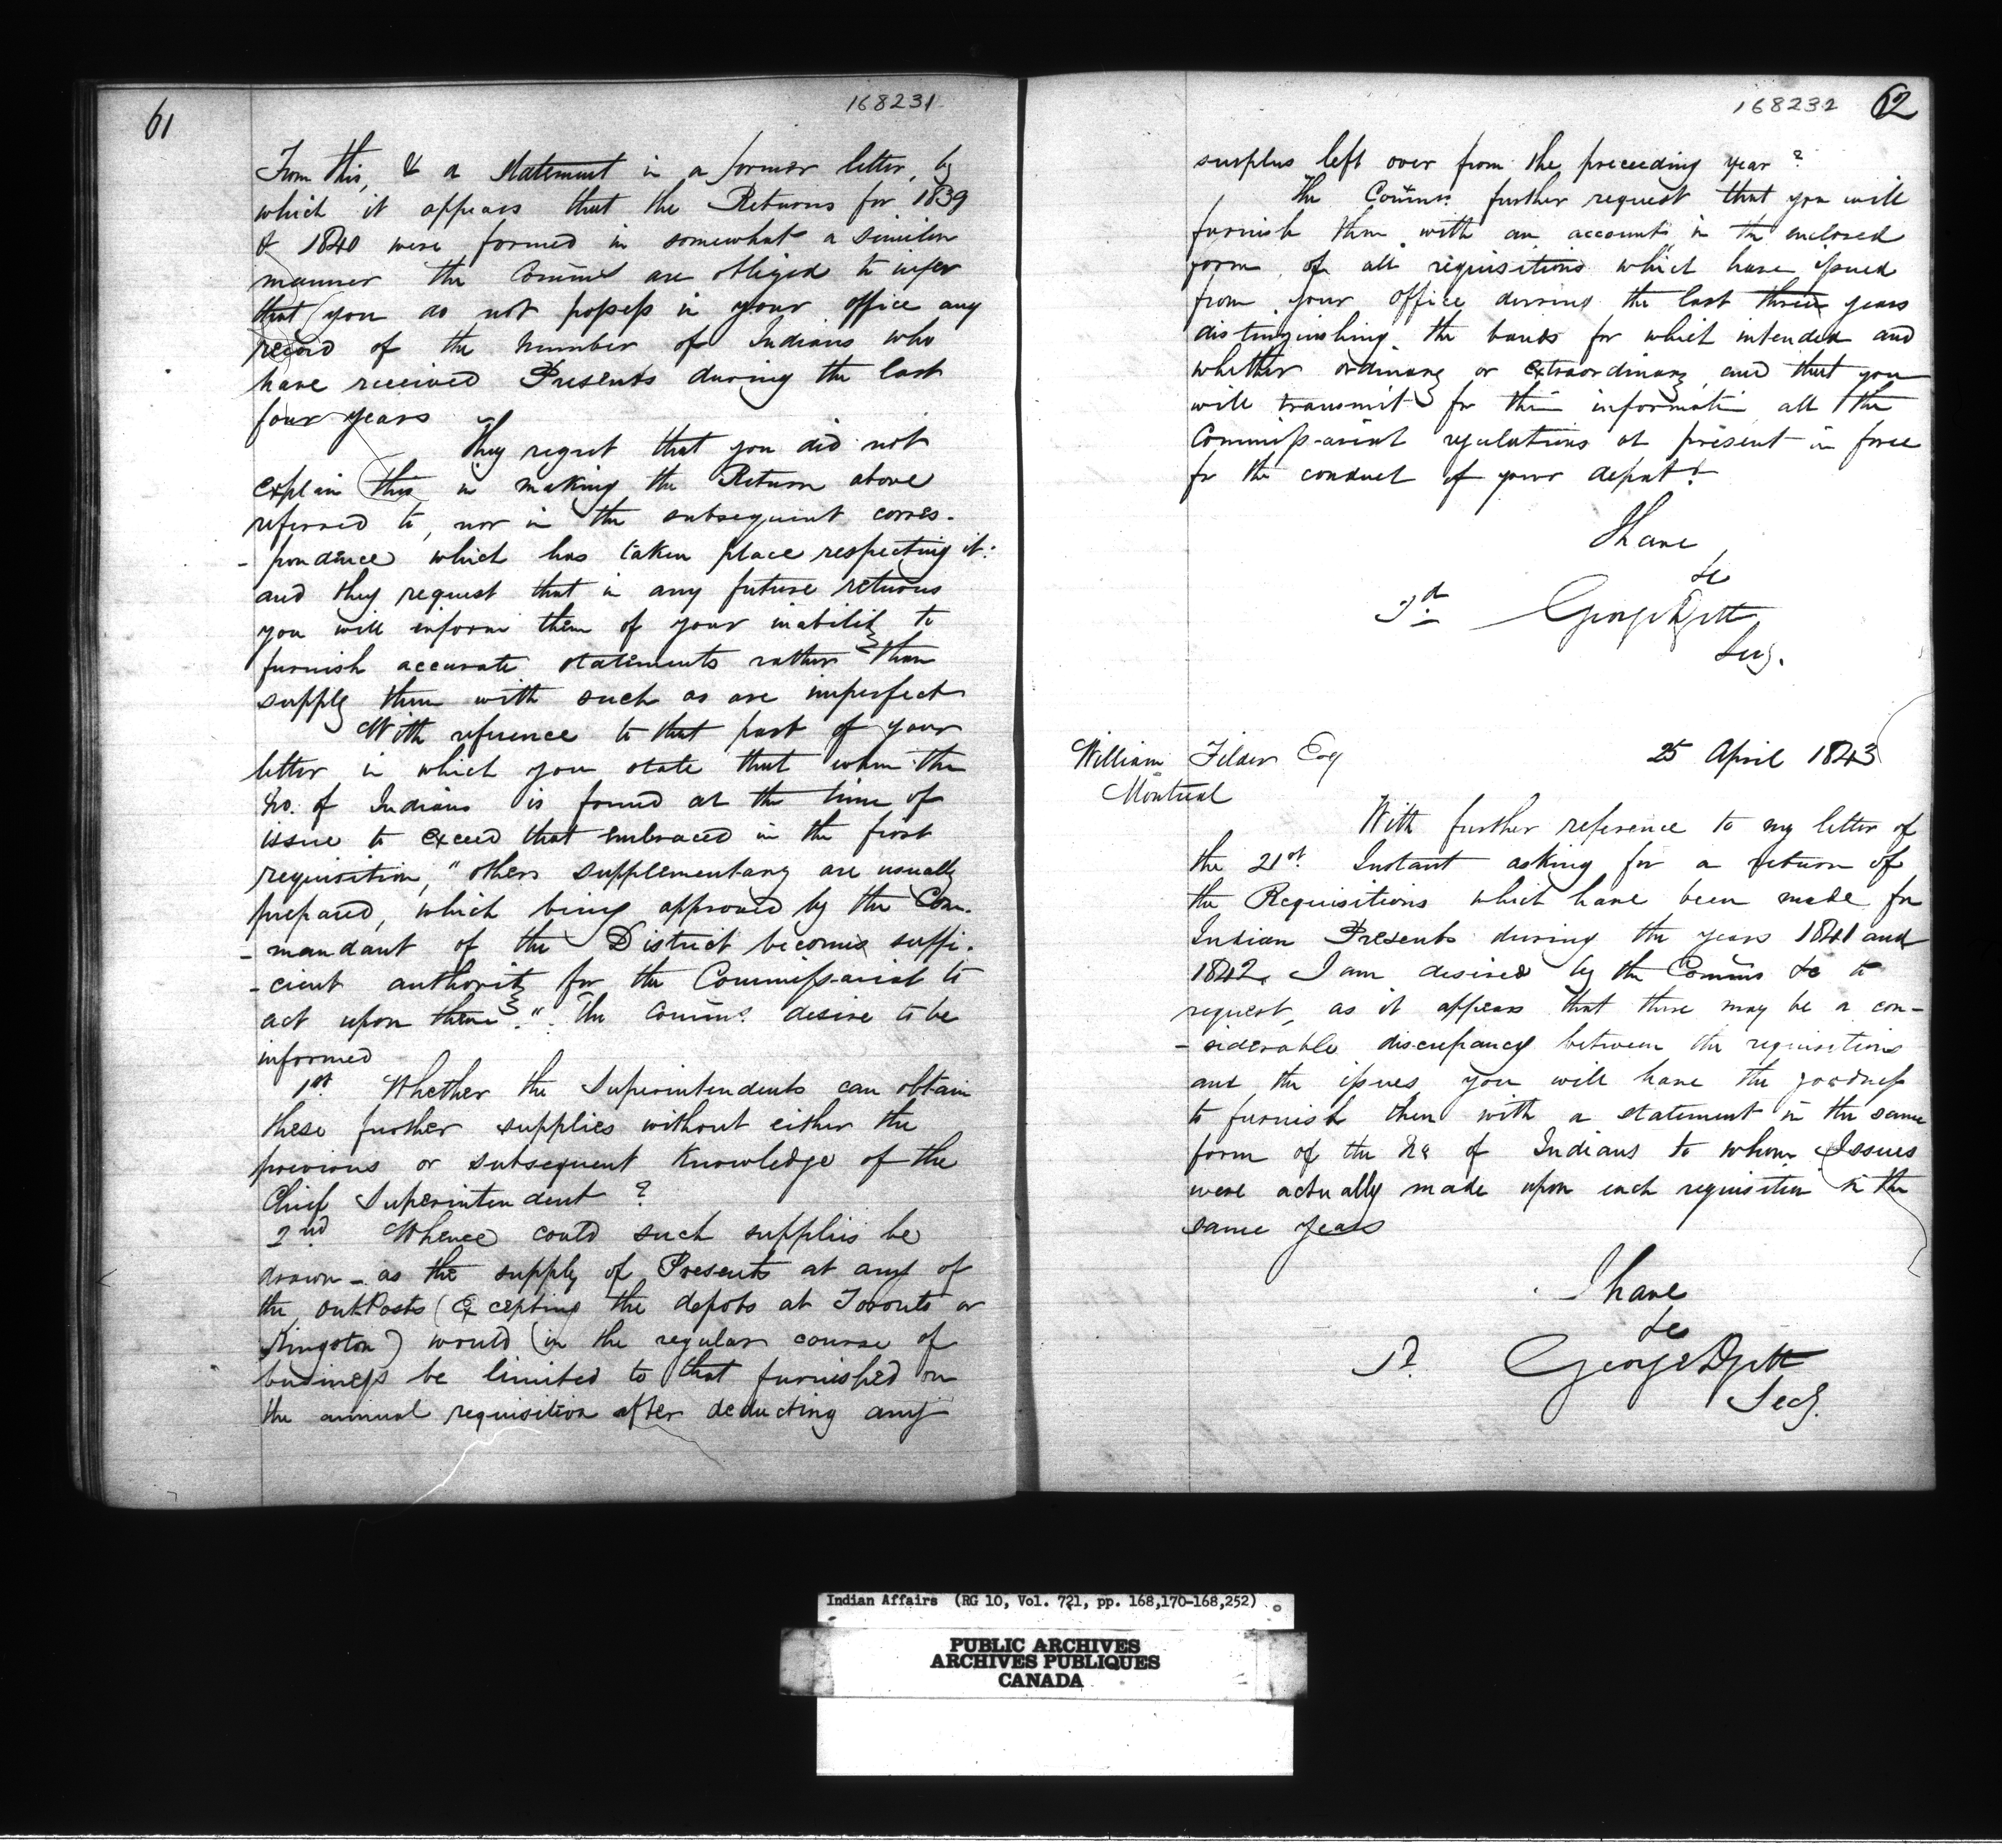 61
168231
From this, & a Statement in a former letter, by
which it appears that the Returns for 1839
& 1840 were formed in somewhat a similar
manner the Comms are obliged to infer
that you do not possess in your office any
record of the Number of Indians who
have received Presents during the last
four years
They regret that you did not
explain this in making the Return above
referred to, nor in the subsequent corres-
-pondence which has taken place respecting it:
and they request that in any future returns
you will inform them of your inability to
furnish accurate statements rather than
supply them with such as are imperfect
With reference to that part of your
letter in which you state that when the
No. of Indians is found at the time of
issue to exceed that embraced in the first
requisition, "others supplementary are usually
prepared, which being approved by the Com-
-mandant of the District becomes suffi-
-cient authority for the Commissariat to
act upon them". The Comms. desire to be
informed
1st Whether the Superintendents can obtain
these further supplies without either the
previous or subsequent knowledge of the
Chief Superintendent ?
2nd Whence could such supplies be
drawn - as the supply of Presents at any of
the out Posts (Excepting the depots at Toronto or
Kingston) would (in the regular course of
business be limited to that furnished on
the annual requisition after deducting any
168232 62
surplus left over from the preceeding year ?
The Comms. further request that you will
furnish them with an account in the enclosed
form of all requisitions which have issued
from your office during the last three years
distinguishing the bands for which intended and
whether ordinary or extraordinary and that you
will transmit for their informatn all the
Commissariat regulations at present in force
for the conduct of your depart.
I have
&c
George
Secy.
William Filder Esq 25 April 1843
Montreal
With further reference to my letter of
the 21st. Instant asking for a return of
the Requisitions which have been made for
Indian Presents during the years 1841 and
1842, I am desired by the Comms &c to
request, as it appears that there may be a con-
-siderable discrepancy between the requisitions
and the issues you will have the goodness
to furnish them with a statement in the same
form of the No of Indians to whom Issues
were actually made upon each requisition in the
same years
I have
&c
George
Secy.
Indian Affairs (RG 10, Vol. 721, pp. 168,170-168,252)
PUBLIC ARCHIVES
ARCHIVES PUBLIQUES
CANADA